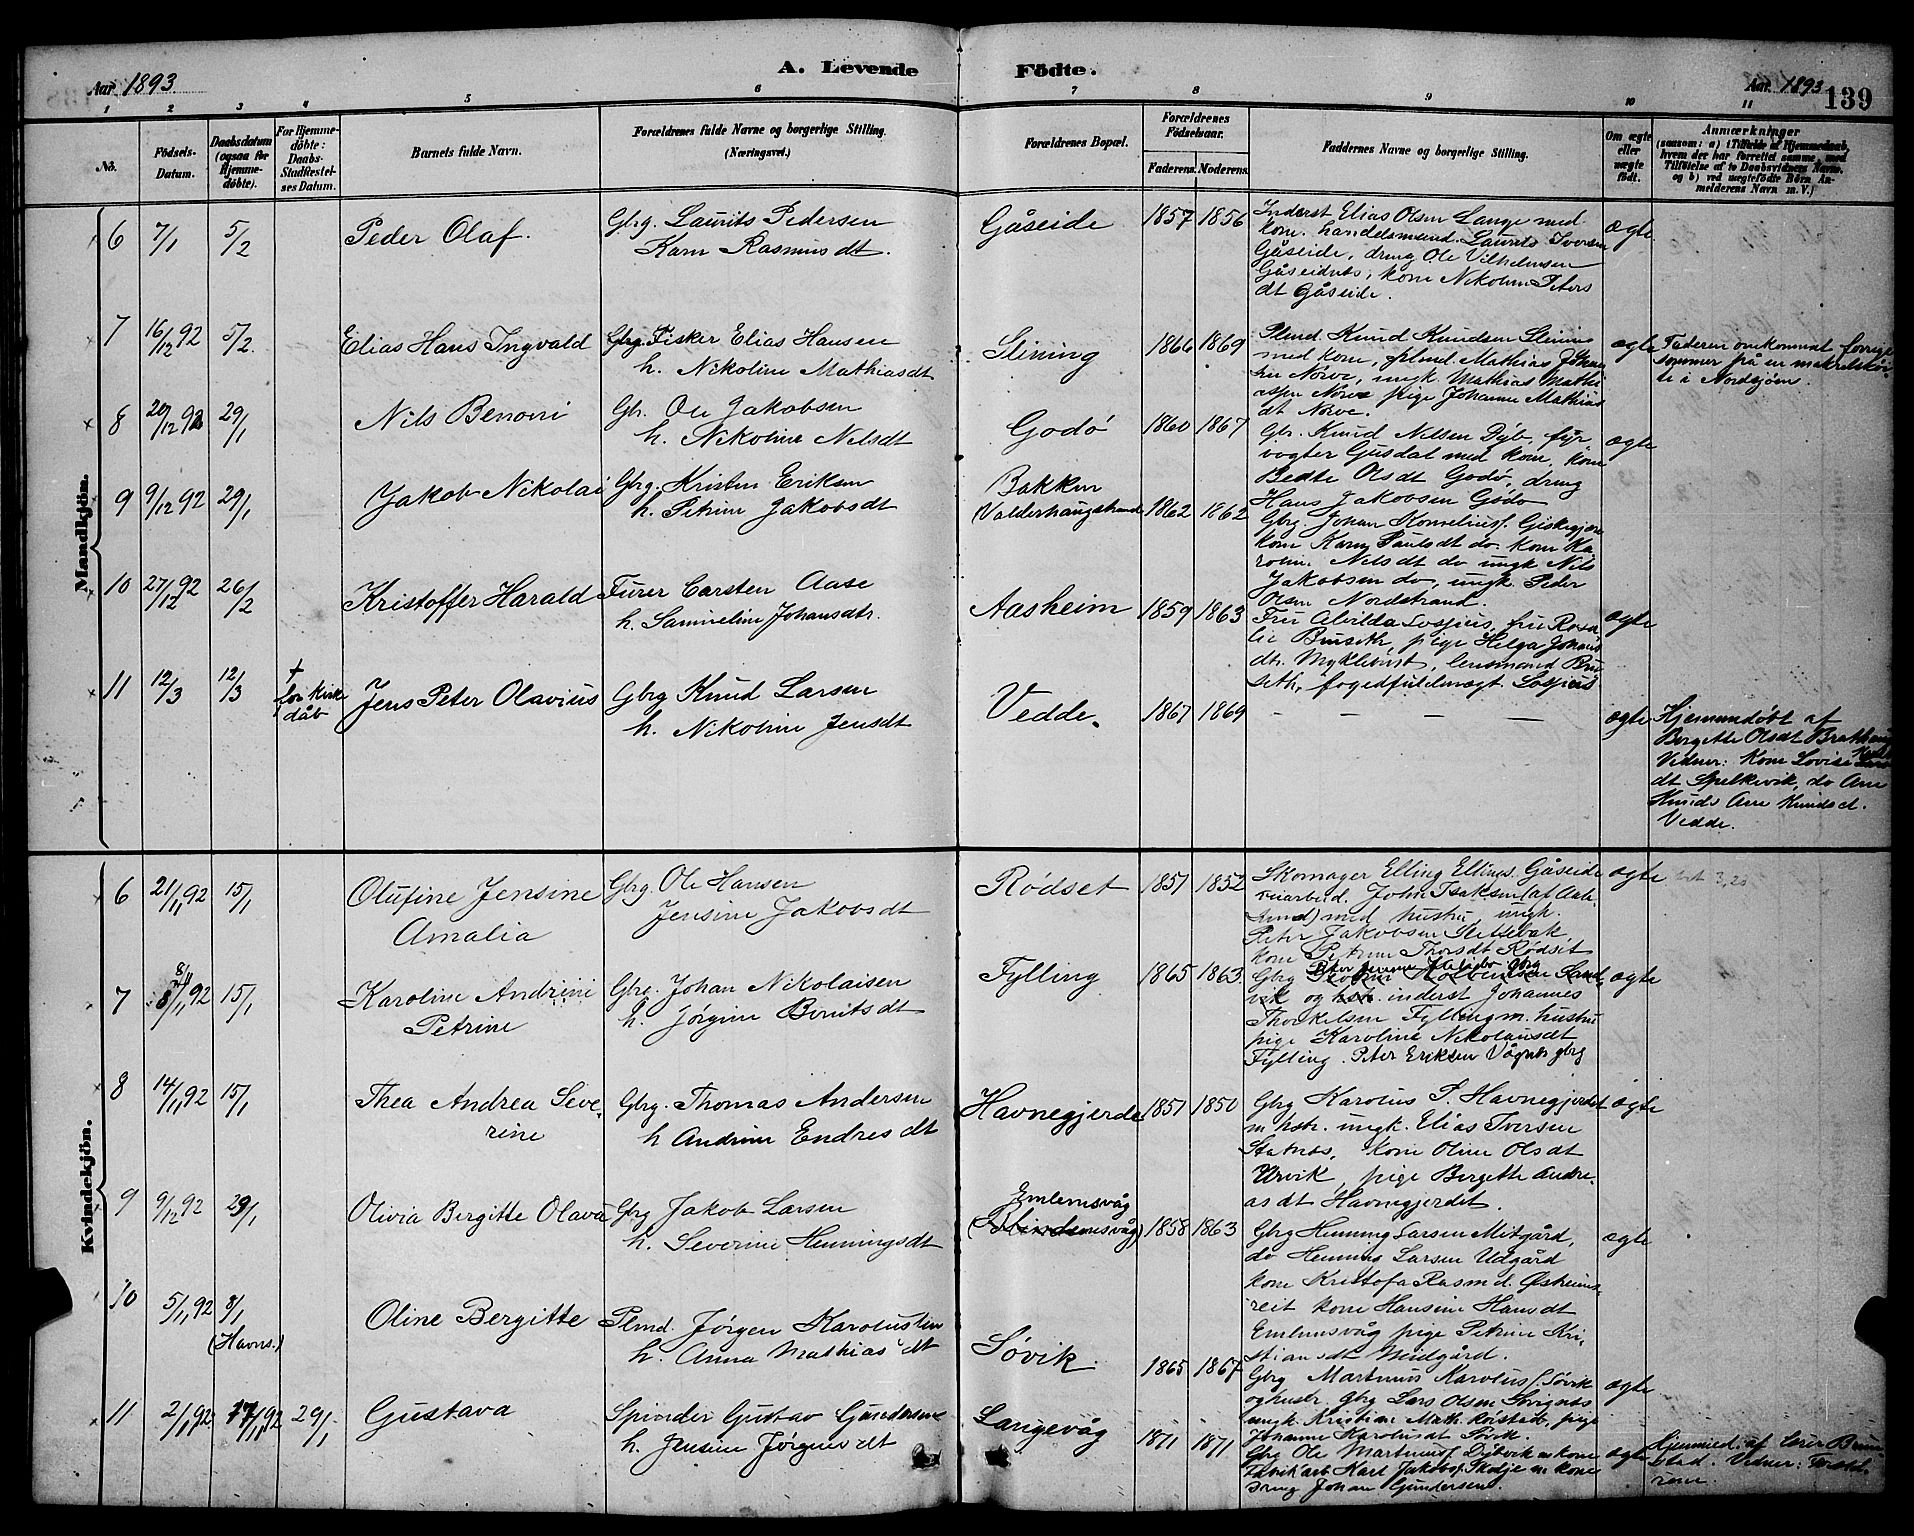 Aar 1893
A. Levende
Födte.
Aar 1893
139
1 2 3 4 5 6 7 8 9 10 11
No.
Födsels-
Datum.
Daabsdatum
(ogsaa for
Hjemme-
döbte).
For Hjemme-
döbte:
Daabs-
Stadfæstel-
ses Datum.
Barnets fulde Navn.
Forældrenes fulde Navne og borgerlige Stilling.
(Næringsvei.)
Forældrenes Bopæl.
Forældrenes
Födselsaar.
Faderens. Moderens.
Faddernes Navne og borgerlige Stilling.
Om ægte
eller
uægte
födt.
Anmærkninger
(saasom: a) i Tilfælde af Hjemmedaab,
hvem der har forrettet samme, med
Tilföielse af to Daabsvidners Navne,
og b) ved uægtefödte Börn An-
melderens Navn m. V.)
Mandkjön.
6 7/1 5/2 Peder Olaf. Gbrg. Laurits Pedersen
Karn Rasmusdt.
Gåseide 1857 1856
Inderst Elias Olsen Lange med
kone. handelsmand. Laurits Iversen
Gåseide, dreng Ole Vilhelmsen
Gåseidnes, kone Nikoline Peters
dt Gåseide.
ægte
7 16/12 92 5/2. Elias Hans Ingvald Gbrg. Fisker Elias Hansen
h. Nikoline Mathiasdt
Slining 1866 1869
Plmd. Knud Knudsen Slining
med kone, plmd. Mathias
Nørve, ungk. Mathias Mathi
asen Nørve pige Johanne Mathias
dt Nørve.
ægte
Faderen omkommet forrige
sommer på en makrelskøi-
te i Nordsjøen.
8 20/12 92 29/1 Nils Benoni Gb. Ole Jakobsen
h. Nikoline Nilsdt
Godø 1860 1867
Gb. Knud Nilsen Dyb, fyr
vogter Gusdal med kone, kone
Bedte Olsdt Godø, dreng
Hans Jakobsen Godø
ægte
9 9/12 92 29/1 Jakob Nikolai Gbrg. Kristen Eriksen
h. Petrine Jakobsdt
Bakken
(Valderhaugstrand 1862 1862
Gbrg. Johan Kornelius. Giskegjerde
kone Karn Paulsdt do. kone Ka-
roline Nilsdt do ungk Nils
Jakobsen do, ungk. Peder
Olsen Nordstrand.
10 27/12 92 26/2 Kristoffer Harald Furer Carsten Aase
h. Samueline Johansdtr.
Aasheim 1859 1863
Fru Alvilda Lossius, fru Rosa
lie Buseth, pige Helga Johans
dtr. Myklebust, lensmand Bu
seth, fogedfuldmægt. Lossius
ægte
11 12/3 12/3 +
før kirke
dåb
Jens Peter Olavius Gbrg Knud Larsen
h. Nikoline Jensdt
Vedde. 1867 1869 — — — —
ægte
Hjemmedøbt af
Bergette Olsdt Brathaug
Vidner: Kone Lovise
dt Spelkevik, do Ane
Knuds Ane Knudsdt.
Vedde.
Kvindekjön.
6 21/11 92 15/1 Olufine Jensine
Amalia
Gbrg. Ole Hansen
Jensine Jakobsdt
Rødset 1851 1852
Skomager Elling Ellings. Gåseide
veiarbeid. John Isaksen (af Aale-
sund) med hustru, ungk.
Peter Jakobsen Slettebak,
kone Petrine Thorsdt Rødset
ægte
7 8/11 92 15/1 Karoline Andrine
Petrine
Gbrg. Johan Nikolaisen
h. Jørgine Berntsdt
Fylling 1865 1863
Gbrg Sand
vik og hstr. inderst Johannes
Thorkelsen Fylling m. hustru
pige Karoline Nikolausdt
Fylling. Peter Eriksen Vågnes gbrg
ægte
8 14/11 92 15/1 Thea Andrea Seve-
rine
Gbrg. Thomas Andersen
h Andrine Endresdt
Havnegjerde 1851 1850
Gbrg Karolus P. Havnegjerdet
m hstr. ungk. Elias Iversen
Slatnes, kone Oline Olsdt
Urvik, pige Bergette Andre-
asdt Havnegjerdet.
ægte
9 9/12 92 29/1 Olivia Bergitte Olava Gbrg Jakob Larsen
h. Severine Henningsdt
Emlemsvåg
1858 1863
Gbrg Henning Larsen Mitgård,
do Henning Larsen Udgård
kone Kristofa Rasm d. Øsheims
reit kone Hansine Hansdt
Emlemsvåg pige Petrine Kri-
stiansdt Midgård.
ægte
10 5/1, 92 8/1
(Havns.)
Oline Bergitte Plmd. Jørgen Karolusen
h. Anna Mathiasdt
Søvik. 1865 1867
Gbrg Martinus Karolus. Søvik
og hustr. gbrg Lars Olsen Søvignes
ungk. Kristian Math. Roistad, pige
Johanne Karolusdt Søvik.
ægte
11 2/11 92. 17/11 92 29/1 Gustava Spinder Gustav Gundersen
h. Jensine Jørgensdt
Langevåg 1871 1871
Gbrg Ole Martinus. Dybvik m kone
Fabrikarb Karl Jakobs. Skodje m kone
Dreng Johan Gundersen.
ægte
Hjemmed. af Lærer Brun
stad. Vidner: Foreld-
rene.